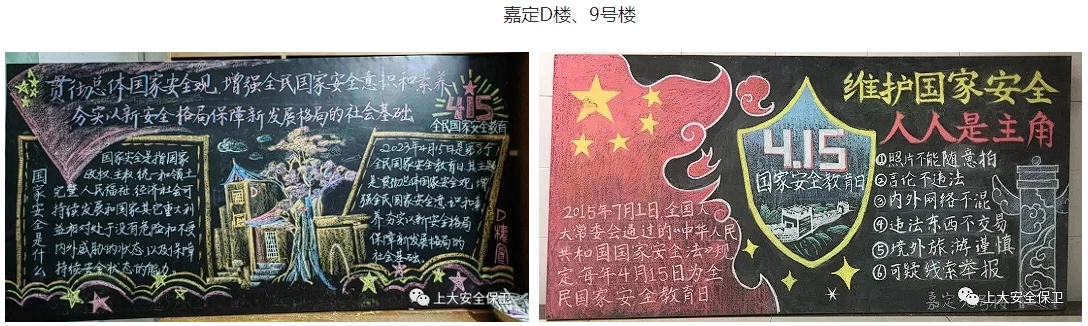 嘉定D楼、9号楼
贯彻总体国家安全观,增强全民国家安全意识和素养
夯实以新安全格局保障新发展格局的社会基础
4.15
全民国家安全教育
国家安全是什么
国家安全是指国家
政权、主权、统一和领土
完整、人民福祉、经济社会可
持续发展和国家其它重大利
益相对处于没有危险和不受
内外威胁的状态,以及保障
持续安全状态的能力。
2023年4月15日是第8个
全民国家安全教育日,其主题
是贯彻总体国家安全观,增
强全民国家安全意识和素
养,夯实以新安全格局
保障新发展格局的
社会基础。
D楼
上大安全保卫
维护国家安全
人人是主角
4.15
国家安全教育日
①照片不能随意拍
②言论不违法
③内外网络不混
④违法东西不交易
⑤境外旅游谨慎
⑥可疑线索举报
2015年7月1日,全国人
大常委会通过的“中华人民
共和国国家安全法”规
定每年4月15日为全
民国家安全教育日
嘉定
上大安全保卫